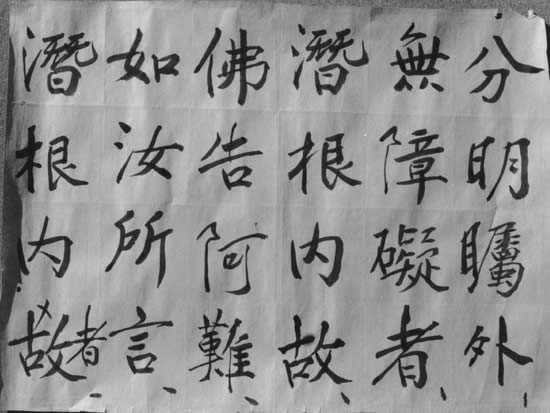 分明矚外、
無障礙者、
潛根內故、
佛告阿難、
如汝所言、
潛根內故者、